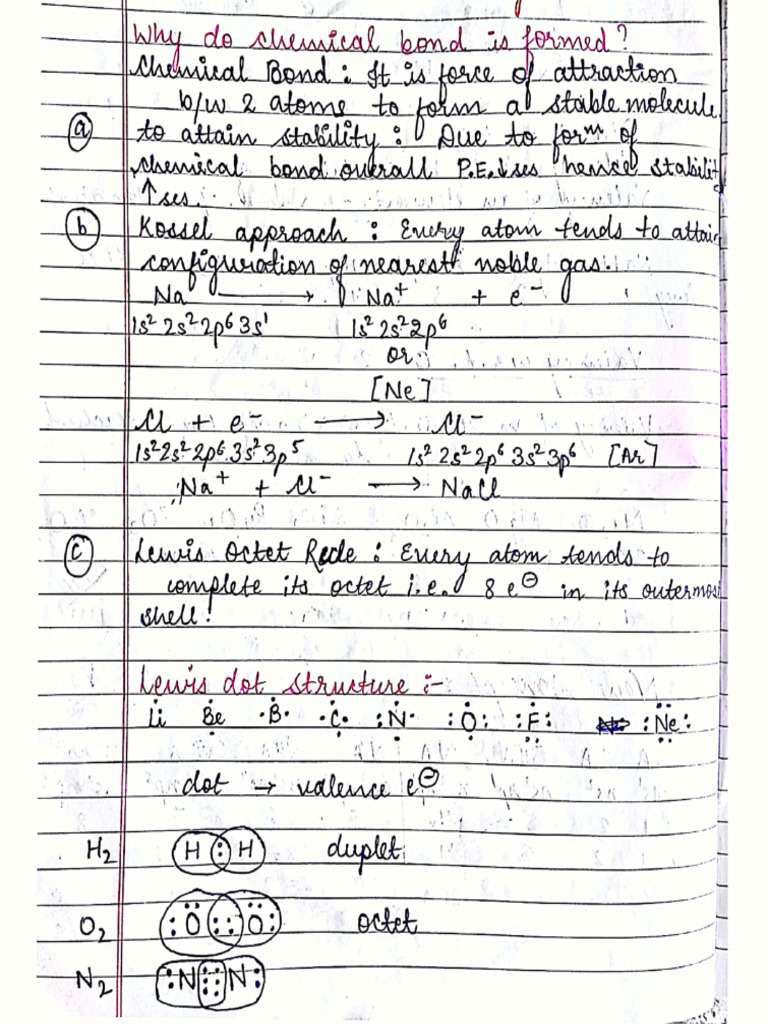 Why do chemical bond is formed?
Chemical Bond : It is force of attraction
b/w 2 atoms to form a stable molecule.
(a) to attain stability : Due to formⁿ of
chemical bond overall P.E.↓ses hence stability
↑ses.
(b) Kossel approach : Every atom tends to attain
configuration of nearest noble gas.
Na ⟶ Na⁺ + e⁻
1s² 2s² 2p⁶ 3s¹ 1s² 2s² 2p⁶
or
[Ne]
Cl + e⁻ ⟶ Cl⁻
1s² 2s² 2p⁶ 3s² 3p⁵ 1s² 2s² 2p⁶ 3s² 3p⁶ [Ar]
Na⁺ + Cl⁻ ⟶ NaCl
(c) Lewis Octet Rule : Every atom tends to
complete its octet i.e. 8 e⊖ in its outermos
shell.
Lewis dot structure :-
Li Be B C N O F Ne
dot → valence e⊖
H₂ H : H duplet
O₂ :O::O: octet
N₂ :N:::N: